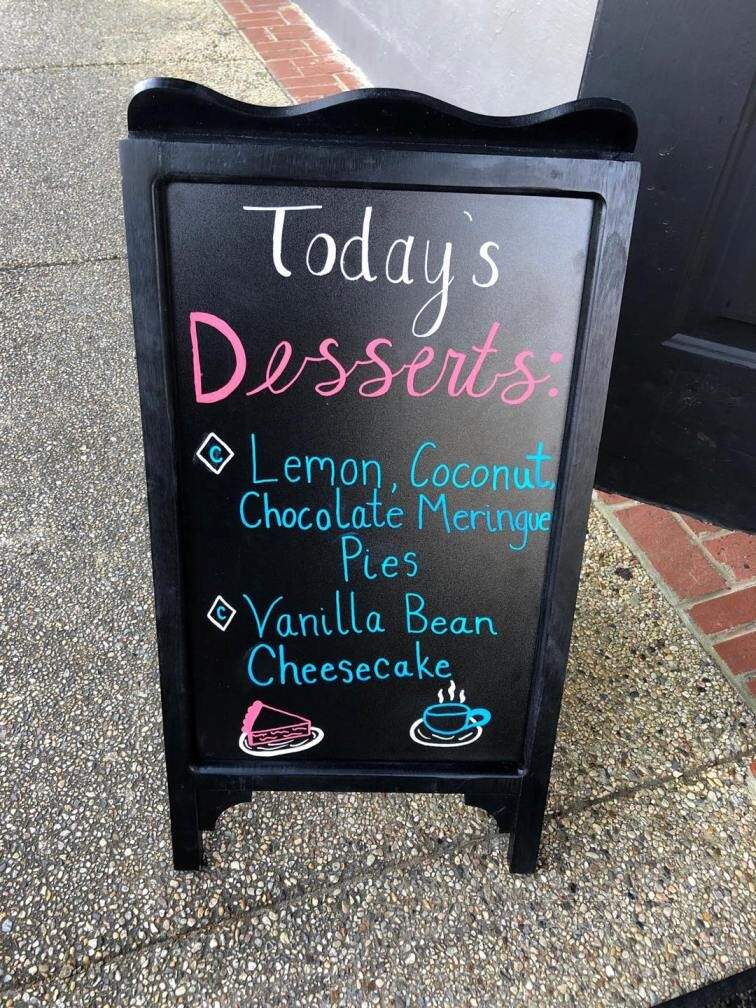 Today's
Desserts:
C Lemon, Coconut,
Chocolate Meringue
Pies
C Vanilla Bean
Cheesecake